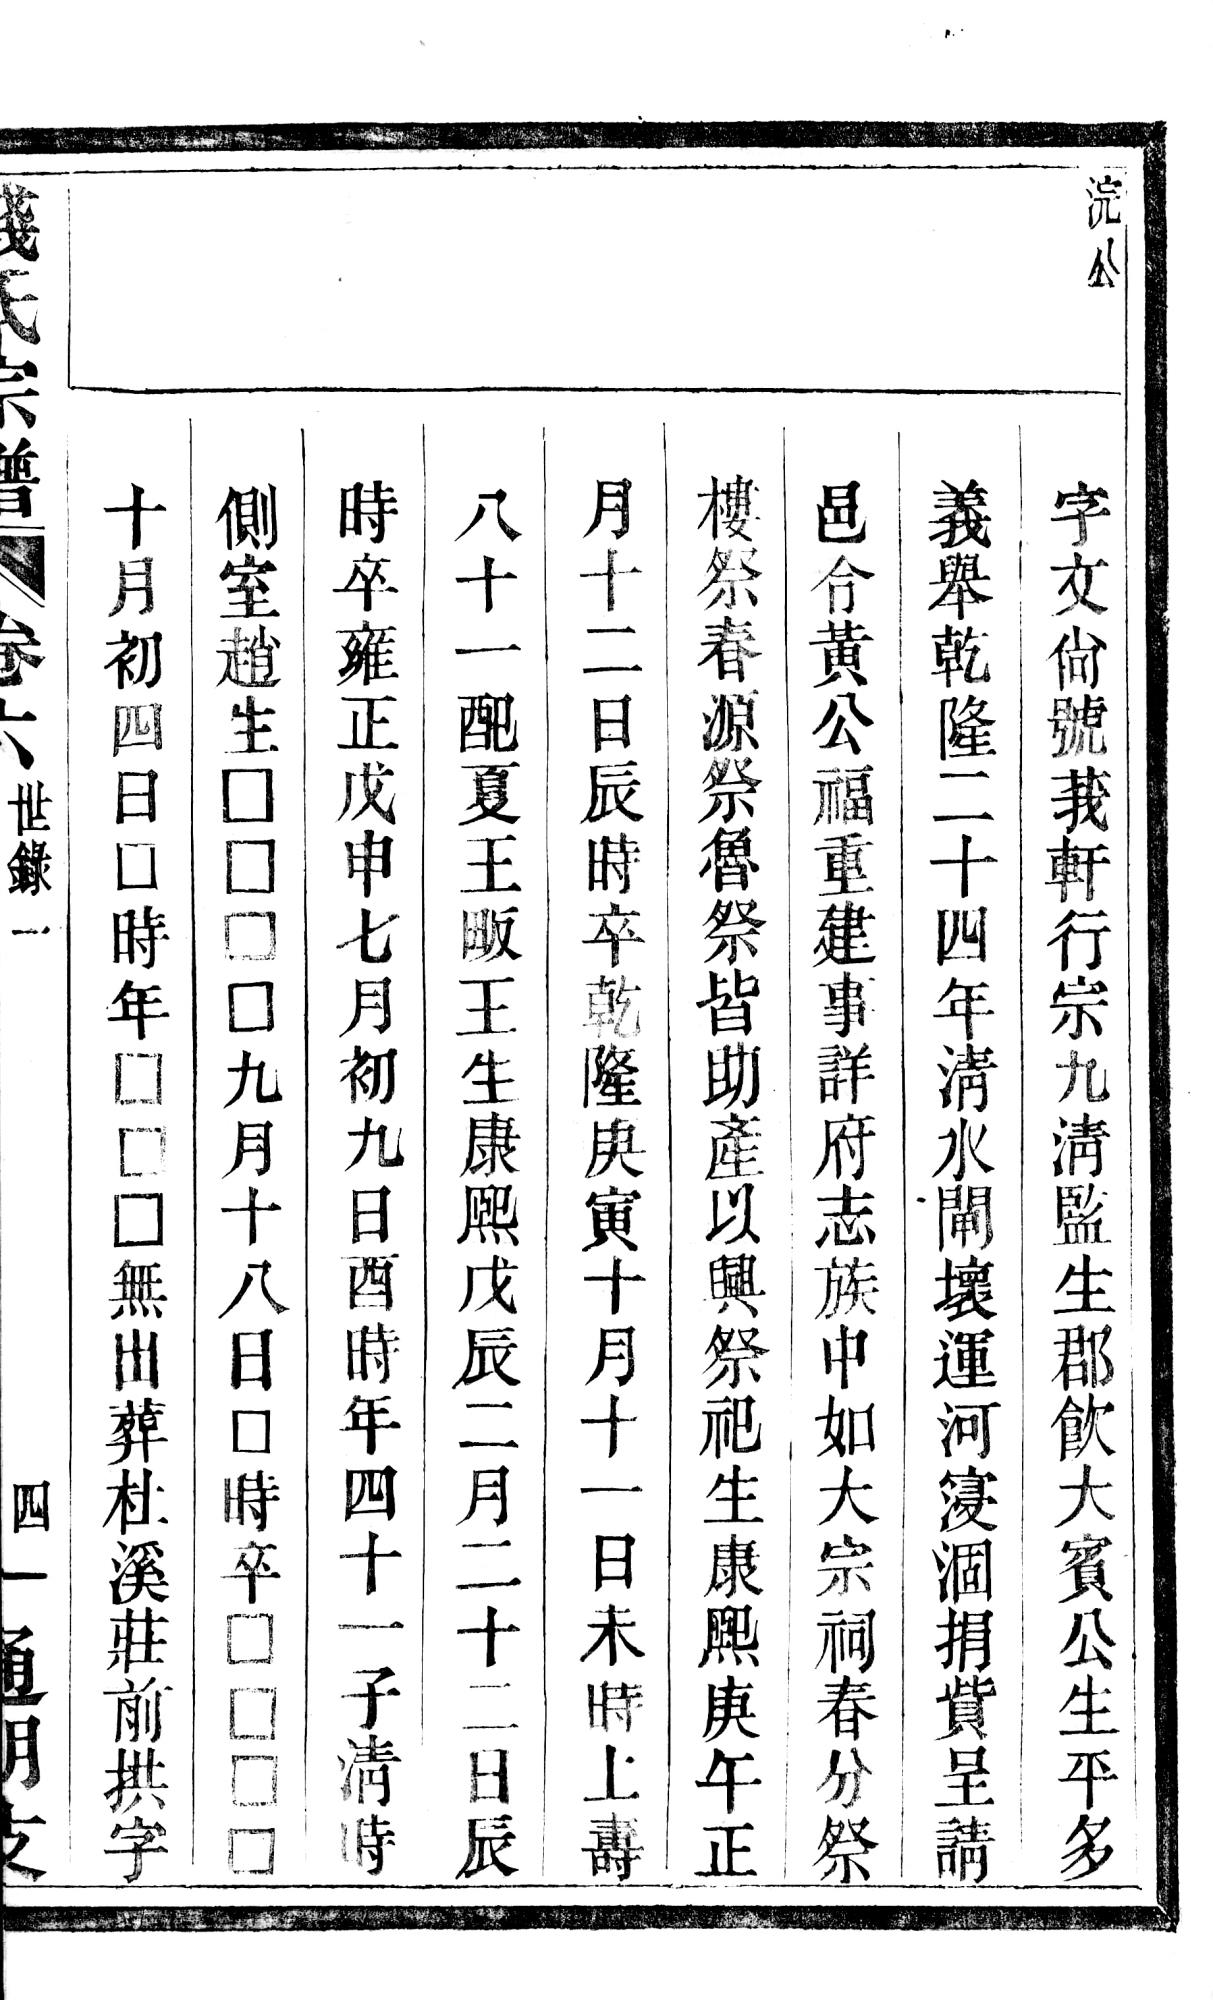 浣公
字文尙號莪軒行宗九淸監生郡飮大賓公生平多
義舉乾隆二十四年淸水閘壞運河寖涸捐貲呈請
邑令黃公福重建事詳府志族中如大宗祠春分祭
樓祭春源祭魯祭皆助產以興祭祀生康熙庚午正
月十二日辰時卒乾隆庚寅十月十一日未時上壽
八十一配夏王畈王生康熙戊辰二月二十二日辰
時卒雍正戊申七月初九日酉時年四十一子淸時
側室趙生□□□□九月十八日□時卒□□□□
十月初四日□時年□□□無出葬杜溪莊前拱字
錢氏宗譜 卷六 世錄一 四一 通明支